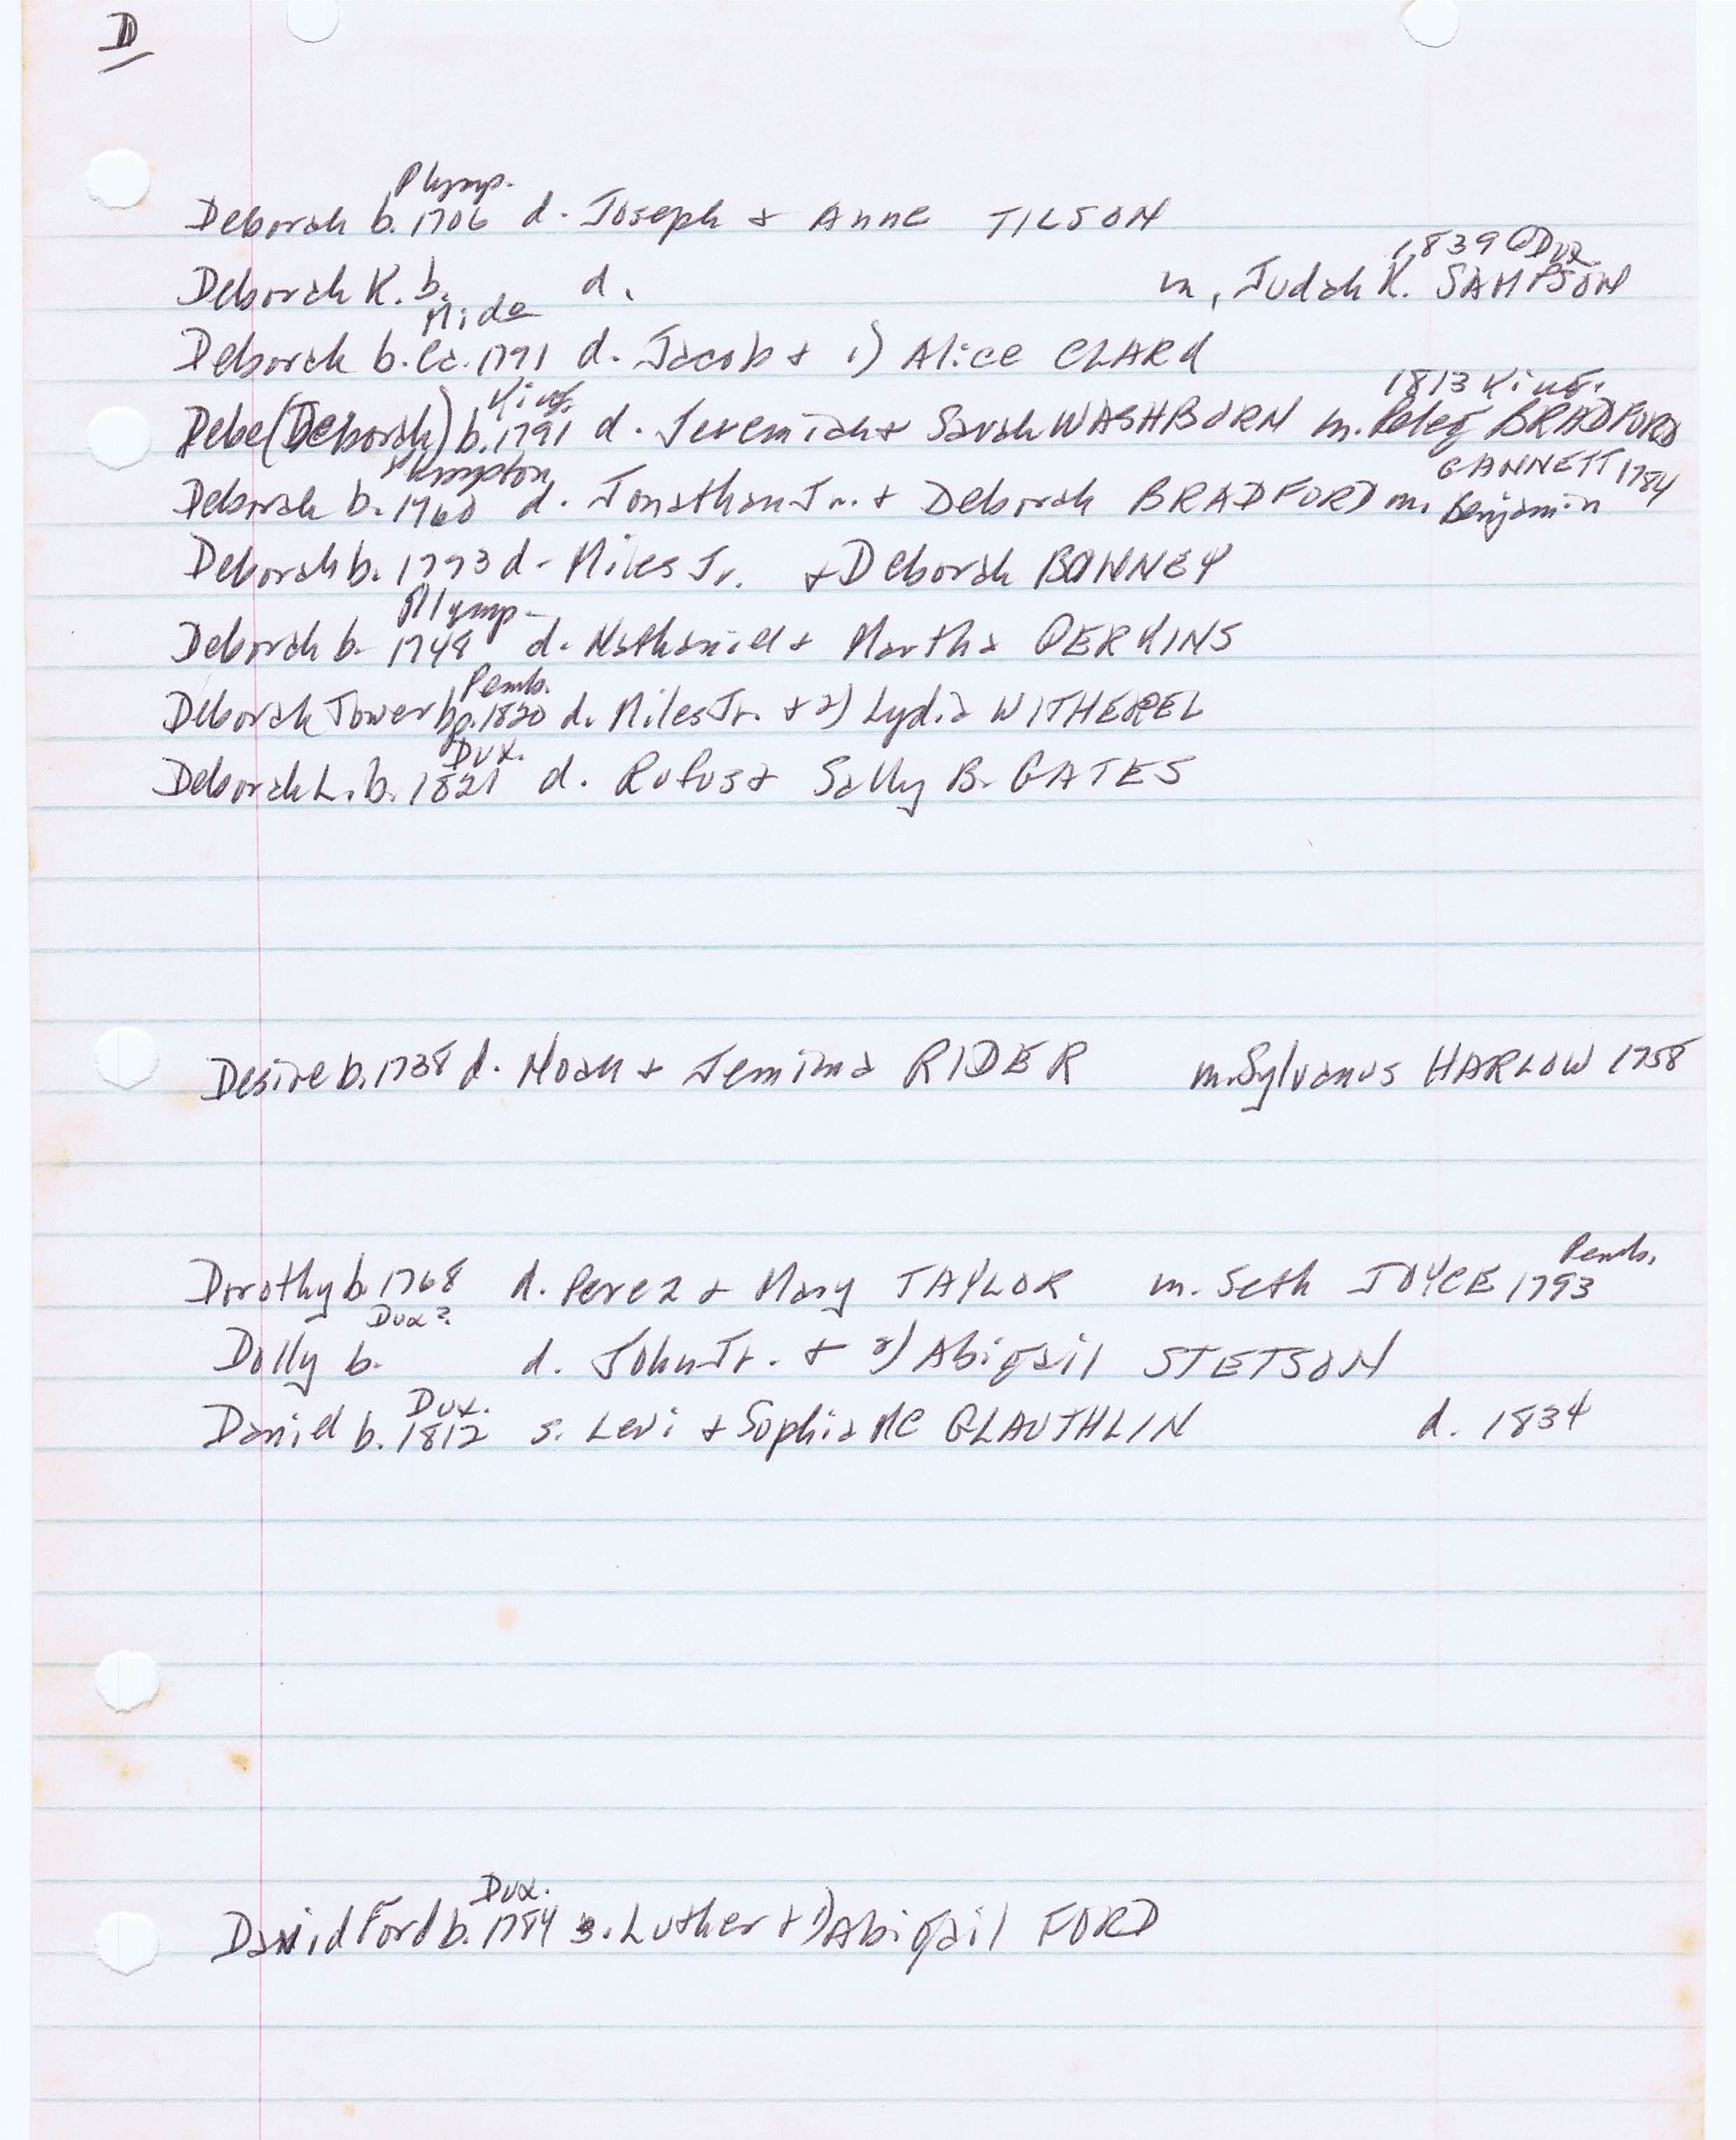 D
Plymp.
Deborah b. 1706 d. Joseph + Anne TILSON
1839 @ Dux
Deborah K. b. d. m. Judah K. SAMPSON
Midd
Deborah b. ca. 1791 d. Jacob + 1) Alice CLARK
King. 1813 King.
Debe (Deborah) b. 1791 d. Jeremiah + Sarah WASHBURN m. Peleg BRADFORD
Plympton GANNETT 1784
Deborah b. 1760 d. Jonathan Jr. + Deborah BRADFORD m. Benjamin
Deborah b. 1793 d. Miles Jr. + Deborah BONNEY
Plymp.
Deborah b. 1748 d. Nathaniel + Martha PERKINS
Pemb.
Deborah Tower bp. 1820 d. Miles Jr. + 2) Lydia WITHEREL
Dux.
Deborah L. b. 1821 d. Rufus + Sally B. GATES
Desire b. 1738 d. Noah + Jemima RIDER m. Sylvanus HARLOW 1758
Pemb.
Dorothy b. 1768 d. Perez + Mary TAYLOR m. Seth JOYCE 1793
Dux?
Dolly b. d. John Jr. + 2) Abigail STETSON
Dux.
Daniel b. 1812 s. Levi + Sophia Mc GLAUTHLIN d. 1834
Dux.
David Ford b. 1784 s. Luther + 1) Abigail FORD